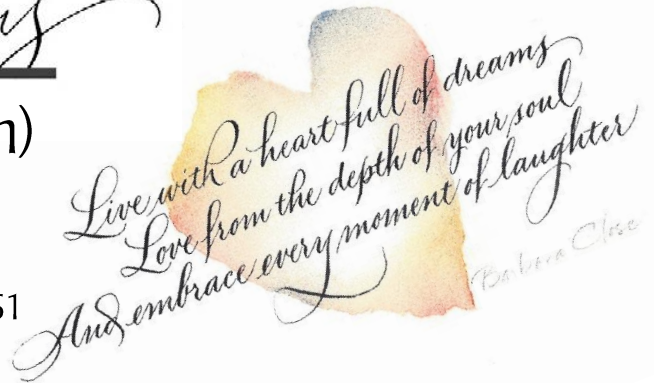 Live with a heart full of dreams
Love from the depth of your soul
And embrace every moment of laughter
Barbara Close
51